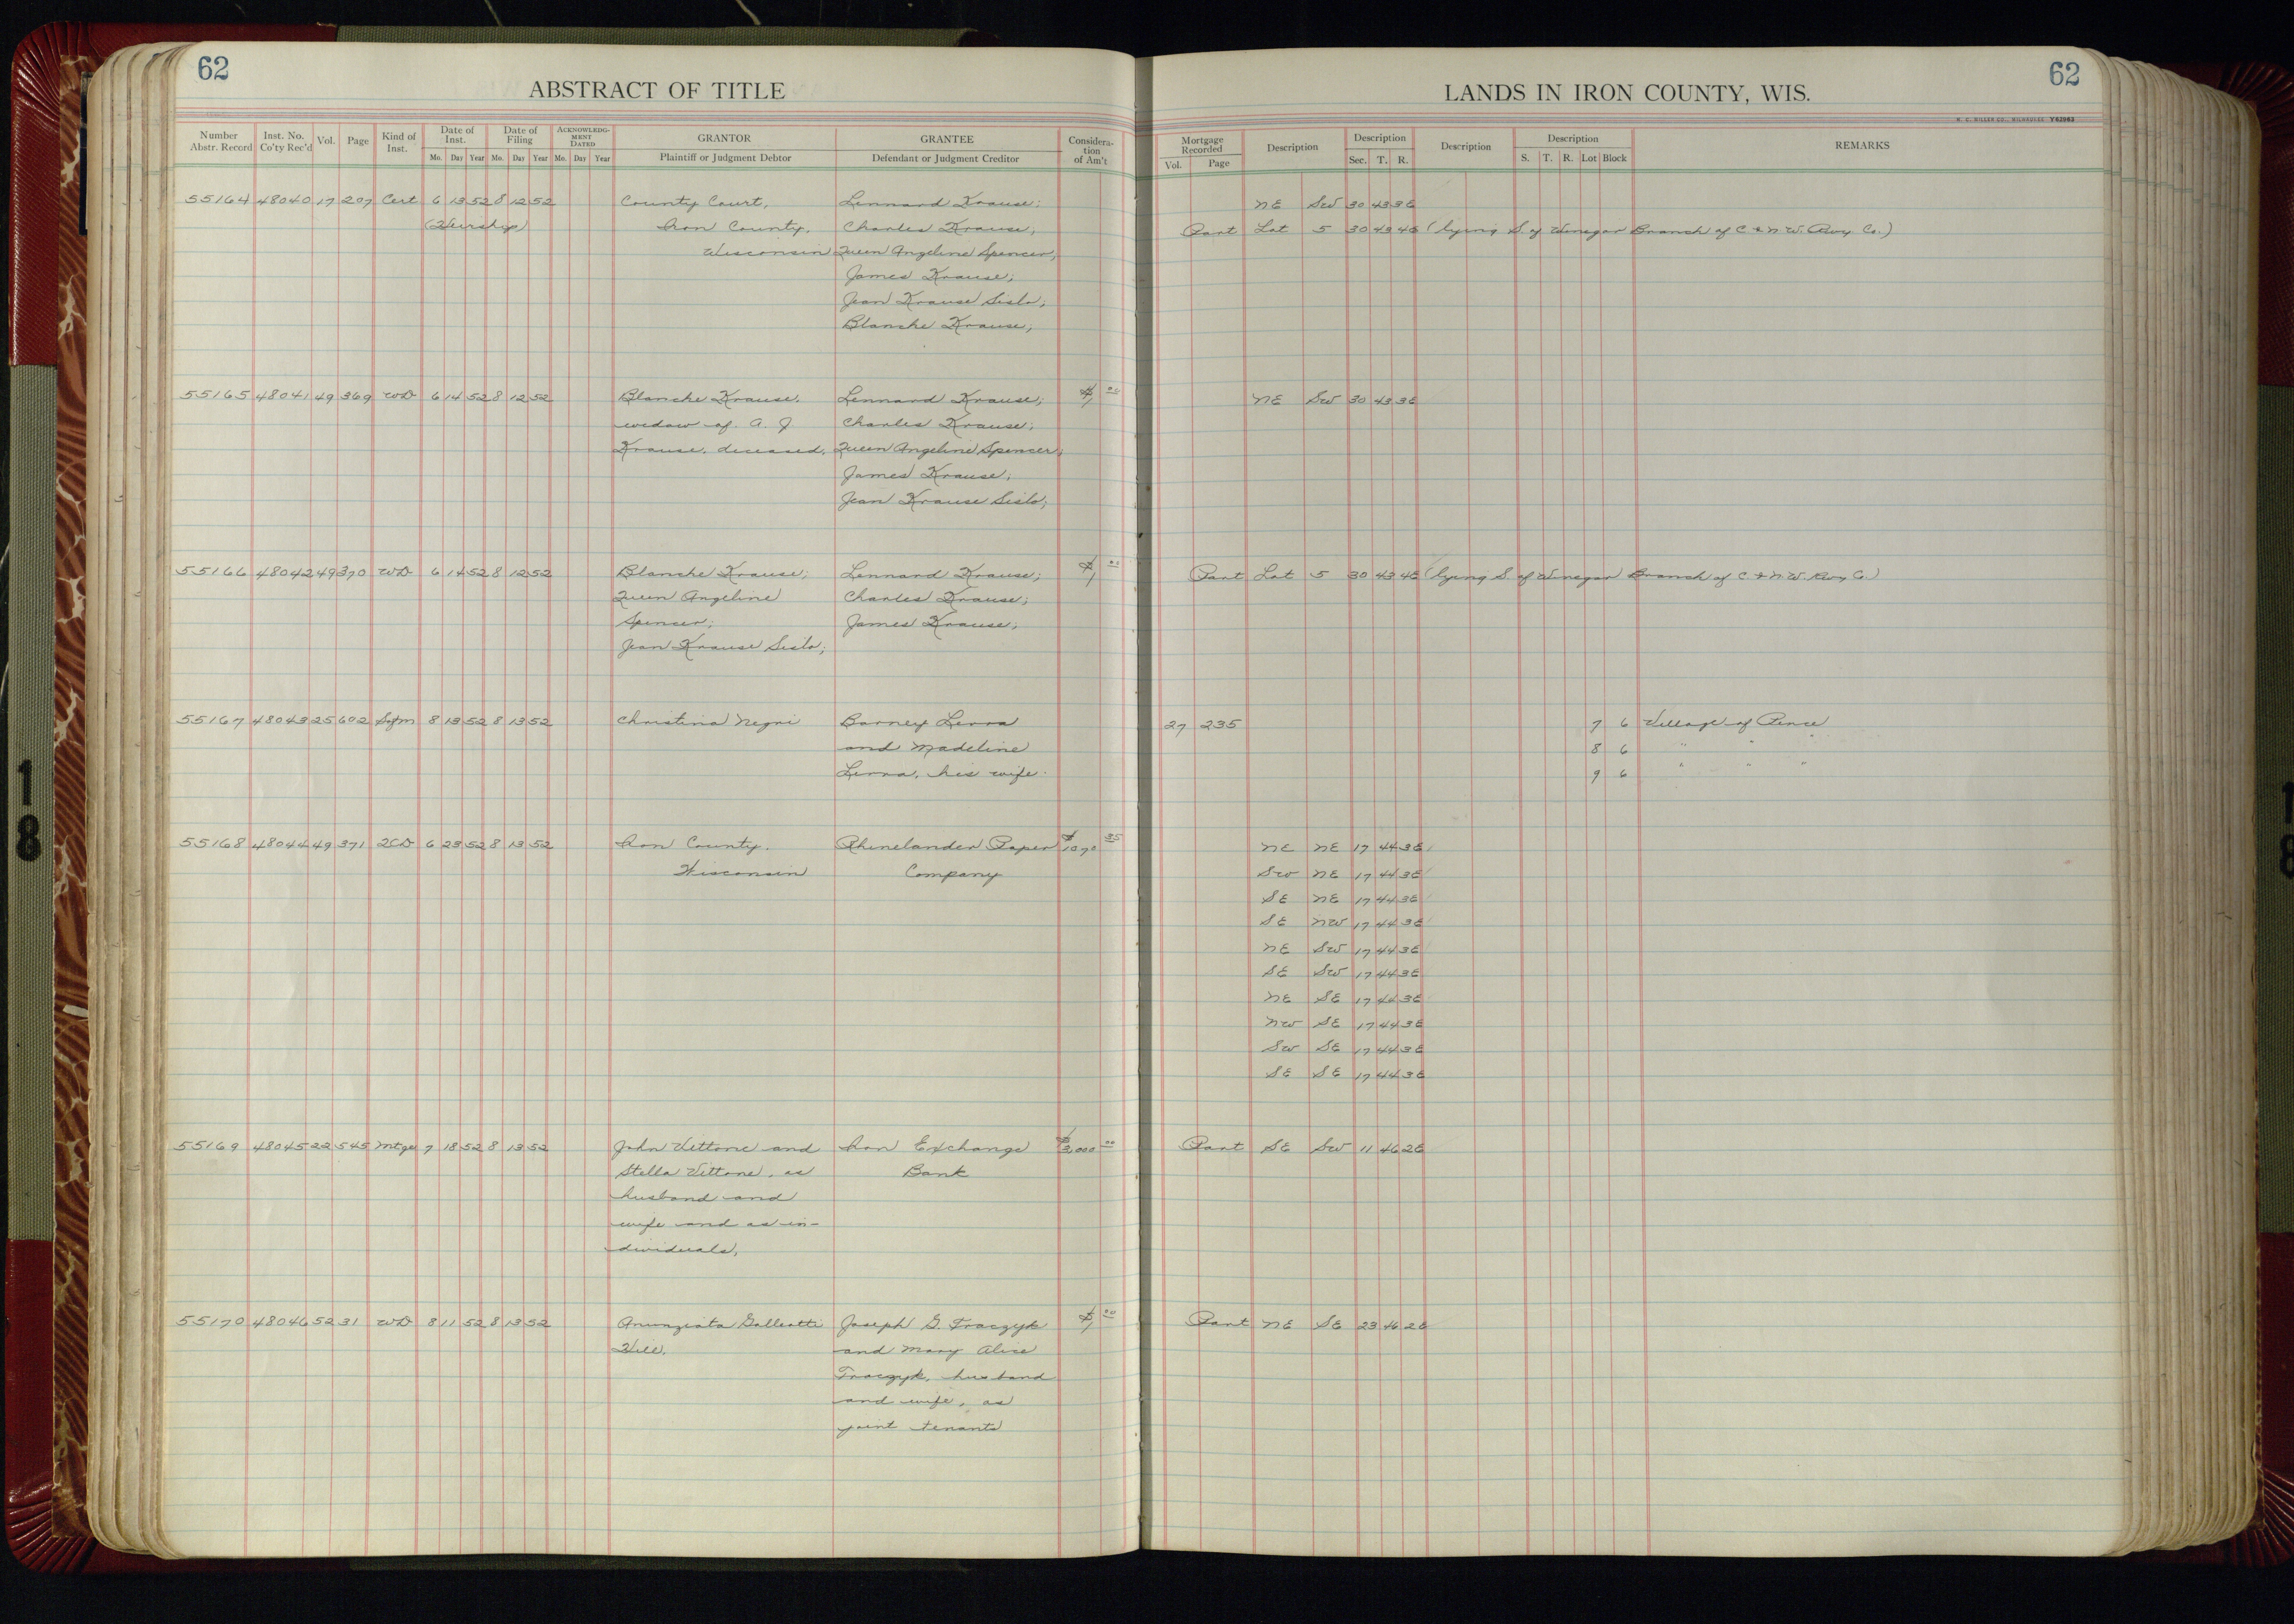 62
ABSTRACT OF TITLE
LANDS IN IRON COUNTY, WIS.
62
H. C. MILLER CO., MILWAUKEE
Number Abstr. Record Inst. No. Co'ty Rec'd Vol. Page Kind of Inst. Date of Inst. Mo. Day Year Date of Filing Mo. Day Year ACKNOWLEDGMENT DATED Mo. Day Year GRANTOR Plaintiff or Judgment Debtor GRANTEE Defendant or Judgment Creditor Consideration of Am't
Mortgage Recorded Vol. Page Description Description Sec. T. R. Description Description S. T. R. Lot Block REMARKS
55164 48040 17 207 Cert 6 13 52 8 12 52 County Court, Lennard Krause; NE SW 30 43 3E
(Heirship) Iron County, Charles Krause; Part Lot 5 30 43 4E (lying S. of Winegar Branch of C & N.W. Rwy Co.)
Wisconsin Queen Angeline Spencer;
James Krause;
Jean Krause Sislo;
Blanche Krause;
55165 48041 49 369 WD 6 14 52 8 12 52 Blanche Krause, Lennard Krause; $1 00 NE SW 30 43 3E
widow of A. J. Charles Krause;
Krause, deceased, Queen Angeline Spencer;
James Krause;
Jean Krause Sislo;
55166 48042 49 370 WD 6 14 52 8 12 52 Blanche Krause; Lennard Krause; $1 00 Part Lot 5 30 43 4E (lying S. of Winegar Branch of C. & N.W. Rwy Co.)
Queen Angeline Charles Krause;
Spencer; James Krause;
Jean Krause Sislo;
55167 48043 25 602 Satm 8 13 52 8 13 52 Christina Negri Barney Lerra 27 235 7 6 Village of Pence
and Madeline 8 6 " " "
Lerra, his wife. 9 6 " " "
55168 48044 49 371 QCD 6 23 52 8 13 52 Iron County, Rhinelander Paper $1070 35 NE NE 17 44 3E
Wisconsin Company SW NE 17 44 3E
SE NE 17 44 3E
SE NW 17 44 3E
NE SW 17 44 3E
SE SW 17 44 3E
NE SE 17 44 3E
NW SE 17 44 3E
SW SE 17 44 3E
SE SE 17 44 3E
55169 48045 22 545 Mtge 7 18 52 8 13 52 John Vittone and Iron Exchange $3,000 00 Part SE SW 11 46 2E
Stella Vittone, as Bank
husband and
wife and as in-
dividuals,
55170 48046 52 31 WD 8 11 52 8 13 52 Anunziata Galleotti Joseph G. Traczyk $1 00 Part NE SE 23 46 2E
Hill, and Mary Alice
Traczyk, husband
and wife, as
joint tenants
18